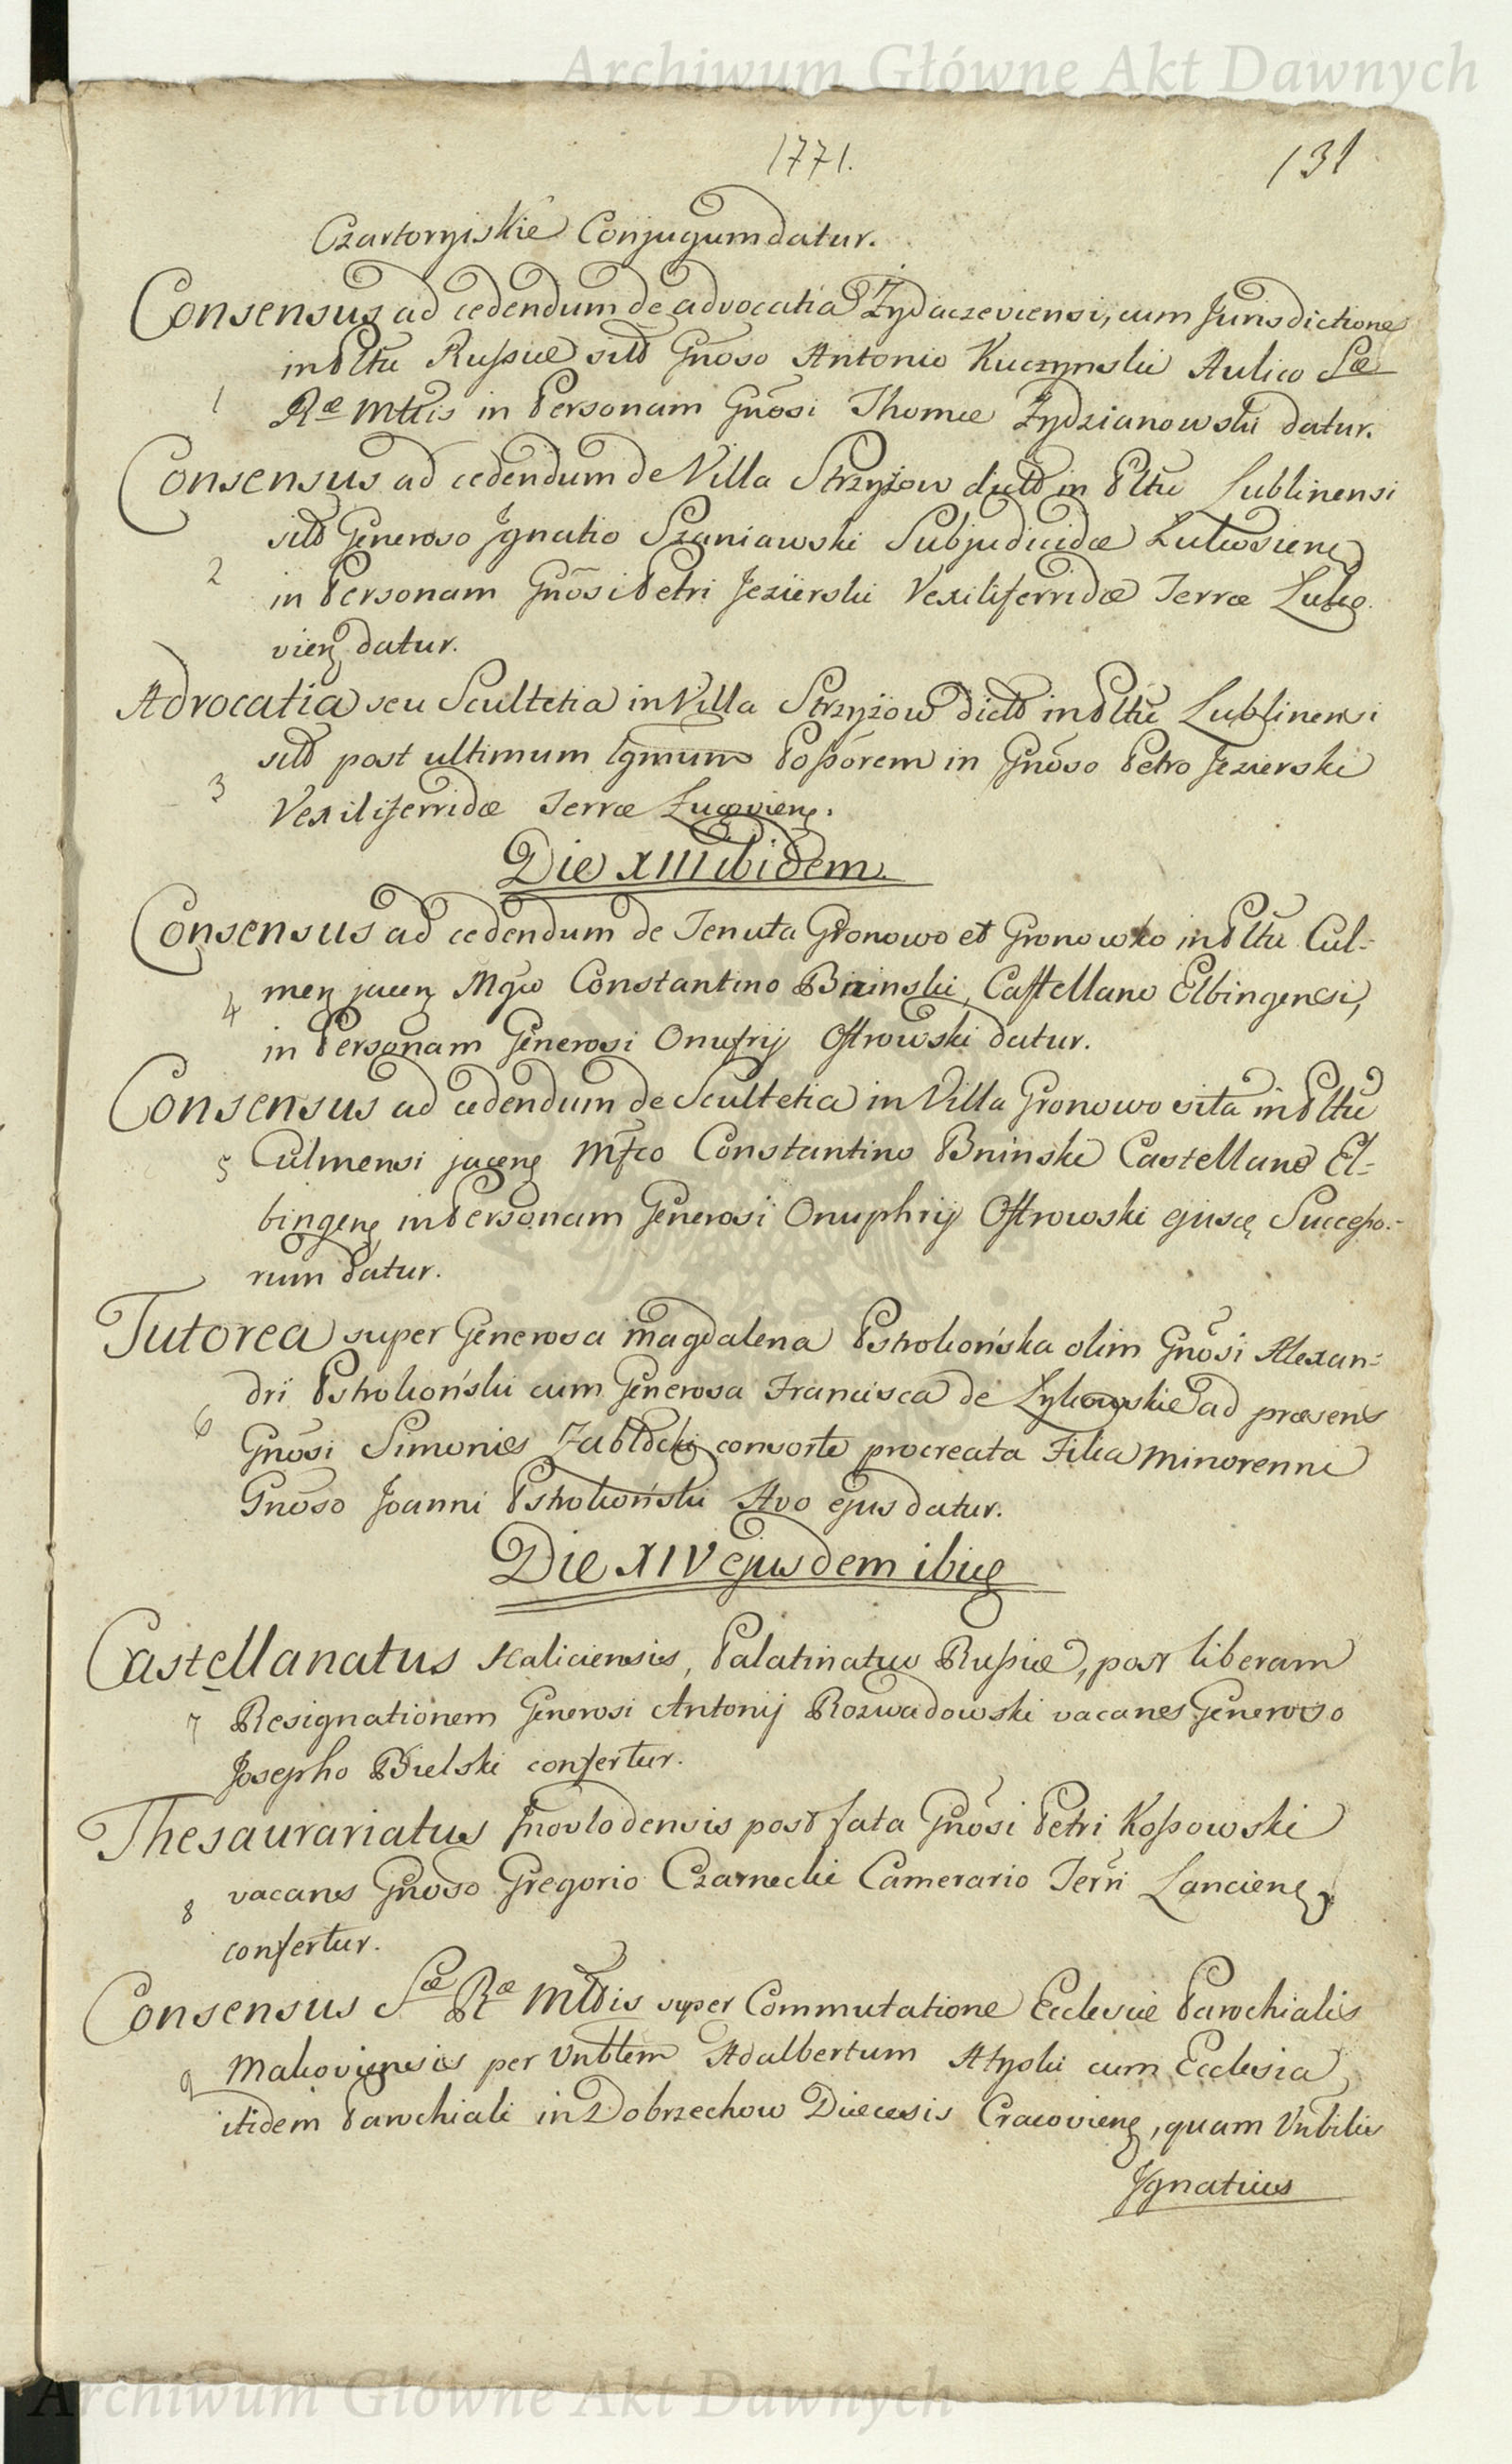 Archiwum Główne Akt Dawnych
1771.
131
Czartoryiskie Conjugum datur.
Consensus ad cedendum de advocatia Żydaczeviensi, cum Jurisdictione
in Pltu Russiæ sitô Gnoso Antonio Kuczynski Aulico Sæ
1 Ræ Mttis in Personam Gnosi Thomæ Żydzianowski datur.
Consensus ad cedendum de Villa Strzyżow dictô in Pltu Lublinensi
sitô Generoso Ignatio Szaniawski Subjudicidæ Lukoviens
2 in Personam Gnosi Petri Jezierski Vexiliferridæ Terræ Luko
viens datur.
Advocatia seu Scultetia in Villa Strzyżow dictô in Pltu Lublinensi
sitô post ultimum Possorem in Gnoso Petro Jezierski
3 Vexiliferridæ Terræ Lucoviens.
Die XIII ibidem.
Consensus ad cedendum de Tenuta Gronowo et Gronowko in Pltu Cul-
4 mens jacens Mgco Constantino Bninski, Castellano Elbingensi,
in Personam Generosi Onufrij Ostrowski datur.
Consensus ad cedendum de Scultetia in Villa Gronowo sita in Pltu
5 Culmensi jacens Mfco Constantino Bninski Castellano El-
bingens in Personam Generosi Onuphrij Ostrowski ejusq Successo-
rum datur.
Tutorea super Generosa Magdalena Pstrokońska olim Gnosi Alexan-
dri Pstrokoński cum Generosa Francisca de Łykowskie ad præsens
6 Gnosi Simonis Zabłocki consorte procreata Filia minorenni
Gnoso Joanni Pstrokoński Avo ejus datur.
Die XIV ejusdem ibid
Castellanatus Haliciensis, Palatinatus Russiæ, post liberam
7 Resignationem Generosi Antonij Rozwadowski vacans Generoso
Josepho Bielski confertur.
Thesaurariatus Inovlodensis post fata Gnosi Petri Kossowski
8 vacans Gnoso Gregorio Czarnecki Camerario Terri Lanciens
confertur.
Consensus Sæ Ræ Mttis super Commutatione Ecclesiæ Parochialis
9 Makoviensis per Vnblem Adalbertum cum Ecclesia
itidem Parochiali in Dobrzechow Diæcesis Cracoviens, quam Vnbilis
Ignatius
Archiwum Główne Akt Dawnych